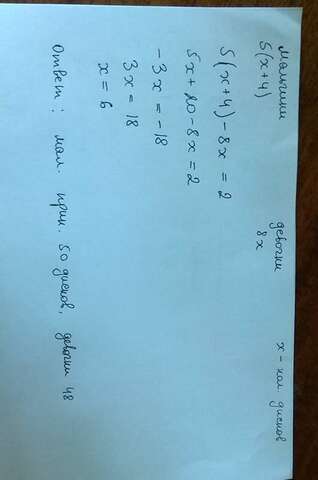 мальчики девочки x - кол. дисков
5(x+4) 8x
5(x+4)-8x = 2
5x+20-8x = 2
-3x = -18
3x = 18
x = 6
Ответ: мал. прин. 50 дисков, девочки 48